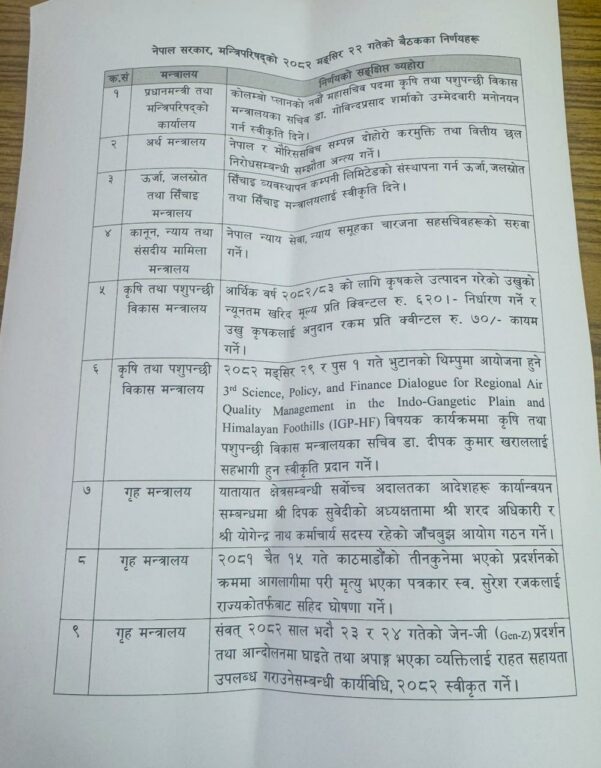 नेपाल सरकार, मन्त्रिपरिषद्को २०८२ मङ्सिर २२ गतेको बैठकका निर्णयहरू
क.सं
मन्त्रालय
निर्णयको सङ्क्षिप्त व्यहोरा
१
प्रधानमन्त्री तथा
मन्त्रिपरिषद्को
कार्यालय
कोलम्बो प्लानको नयाँ महासचिव पदमा कृषि तथा पशुपन्छी विकास
मन्त्रालयका सचिव डा. गोविन्दप्रसाद शर्माको उम्मेदवारी मनोनयन
गर्न स्वीकृति दिने।
२
अर्थ मन्त्रालय
नेपाल र मौरिससबिच सम्पन्न दोहोरो करमुक्ति तथा वित्तीय छल
निरोधसम्बन्धी सम्झौता अन्त्य गर्ने।
३
ऊर्जा, जलस्रोत
तथा सिँचाइ
मन्त्रालय
सिँचाइ व्यवस्थापन कम्पनी लिमिटेडको संस्थापना गर्न ऊर्जा, जलस्रोत
तथा सिँचाइ मन्त्रालयलाई स्वीकृति दिने।
४
कानून, न्याय तथा
संसदीय मामिला
मन्त्रालय
नेपाल न्याय सेवा, न्याय समूहका चारजना सहसचिवहरूको सरुवा
गर्ने।
५
कृषि तथा पशुपन्छी
विकास मन्त्रालय
आर्थिक वर्ष २०८२/८३ को लागि कृषकले उत्पादन गरेको उखुको
न्यूनतम खरिद मूल्य प्रति क्विन्टल रु. ६२०।- निर्धारण गर्ने र
उखु कृषकलाई अनुदान रकम प्रति क्वीन्टल रु. ७०/- कायम
गर्ने।
६
कृषि तथा पशुपन्छी
विकास मन्त्रालय
२०८२ मङ्सिर २९ र पुस १ गते भुटानको थिम्पुमा आयोजना हुने
3rd Science, Policy, and Finance Dialogue for Regional Air
Quality Management in the Indo-Gangetic Plain and
Himalayan Foothills (IGP-HF) विषयक कार्यक्रममा कृषि तथा
पशुपन्छी विकास मन्त्रालयका सचिव डा. दीपक कुमार खराललाई
सहभागी हुन स्वीकृति प्रदान गर्ने।
७
गृह मन्त्रालय
यातायात क्षेत्रसम्बन्धी सर्वोच्च अदालतका आदेशहरू कार्यान्वयन
सम्बन्धमा श्री दिपक सुवेदीको अध्यक्षतामा श्री शरद अधिकारी र
श्री योगेन्द्र नाथ कर्माचार्य सदस्य रहेको जाँचबुझ आयोग गठन गर्ने।
८
गृह मन्त्रालय
२०८१ चैत १५ गते काठमाडौंको तीनकुनेमा भएको प्रदर्शनको
क्रममा आगलागीमा परी मृत्यु भएका पत्रकार स्व. सुरेश रजकलाई
राज्यकोतर्फबाट सहिद घोषणा गर्ने।
९
गृह मन्त्रालय
संवत् २०८२ साल भदौ २३ र २४ गतेको जेन-जी (Gen-Z) प्रदर्शन
तथा आन्दोलनमा घाइते तथा अपाङ्ग भएका व्यक्तिलाई राहत सहायता
उपलब्ध गराउनेसम्बन्धी कार्यविधि, २०८२ स्वीकृत गर्ने।